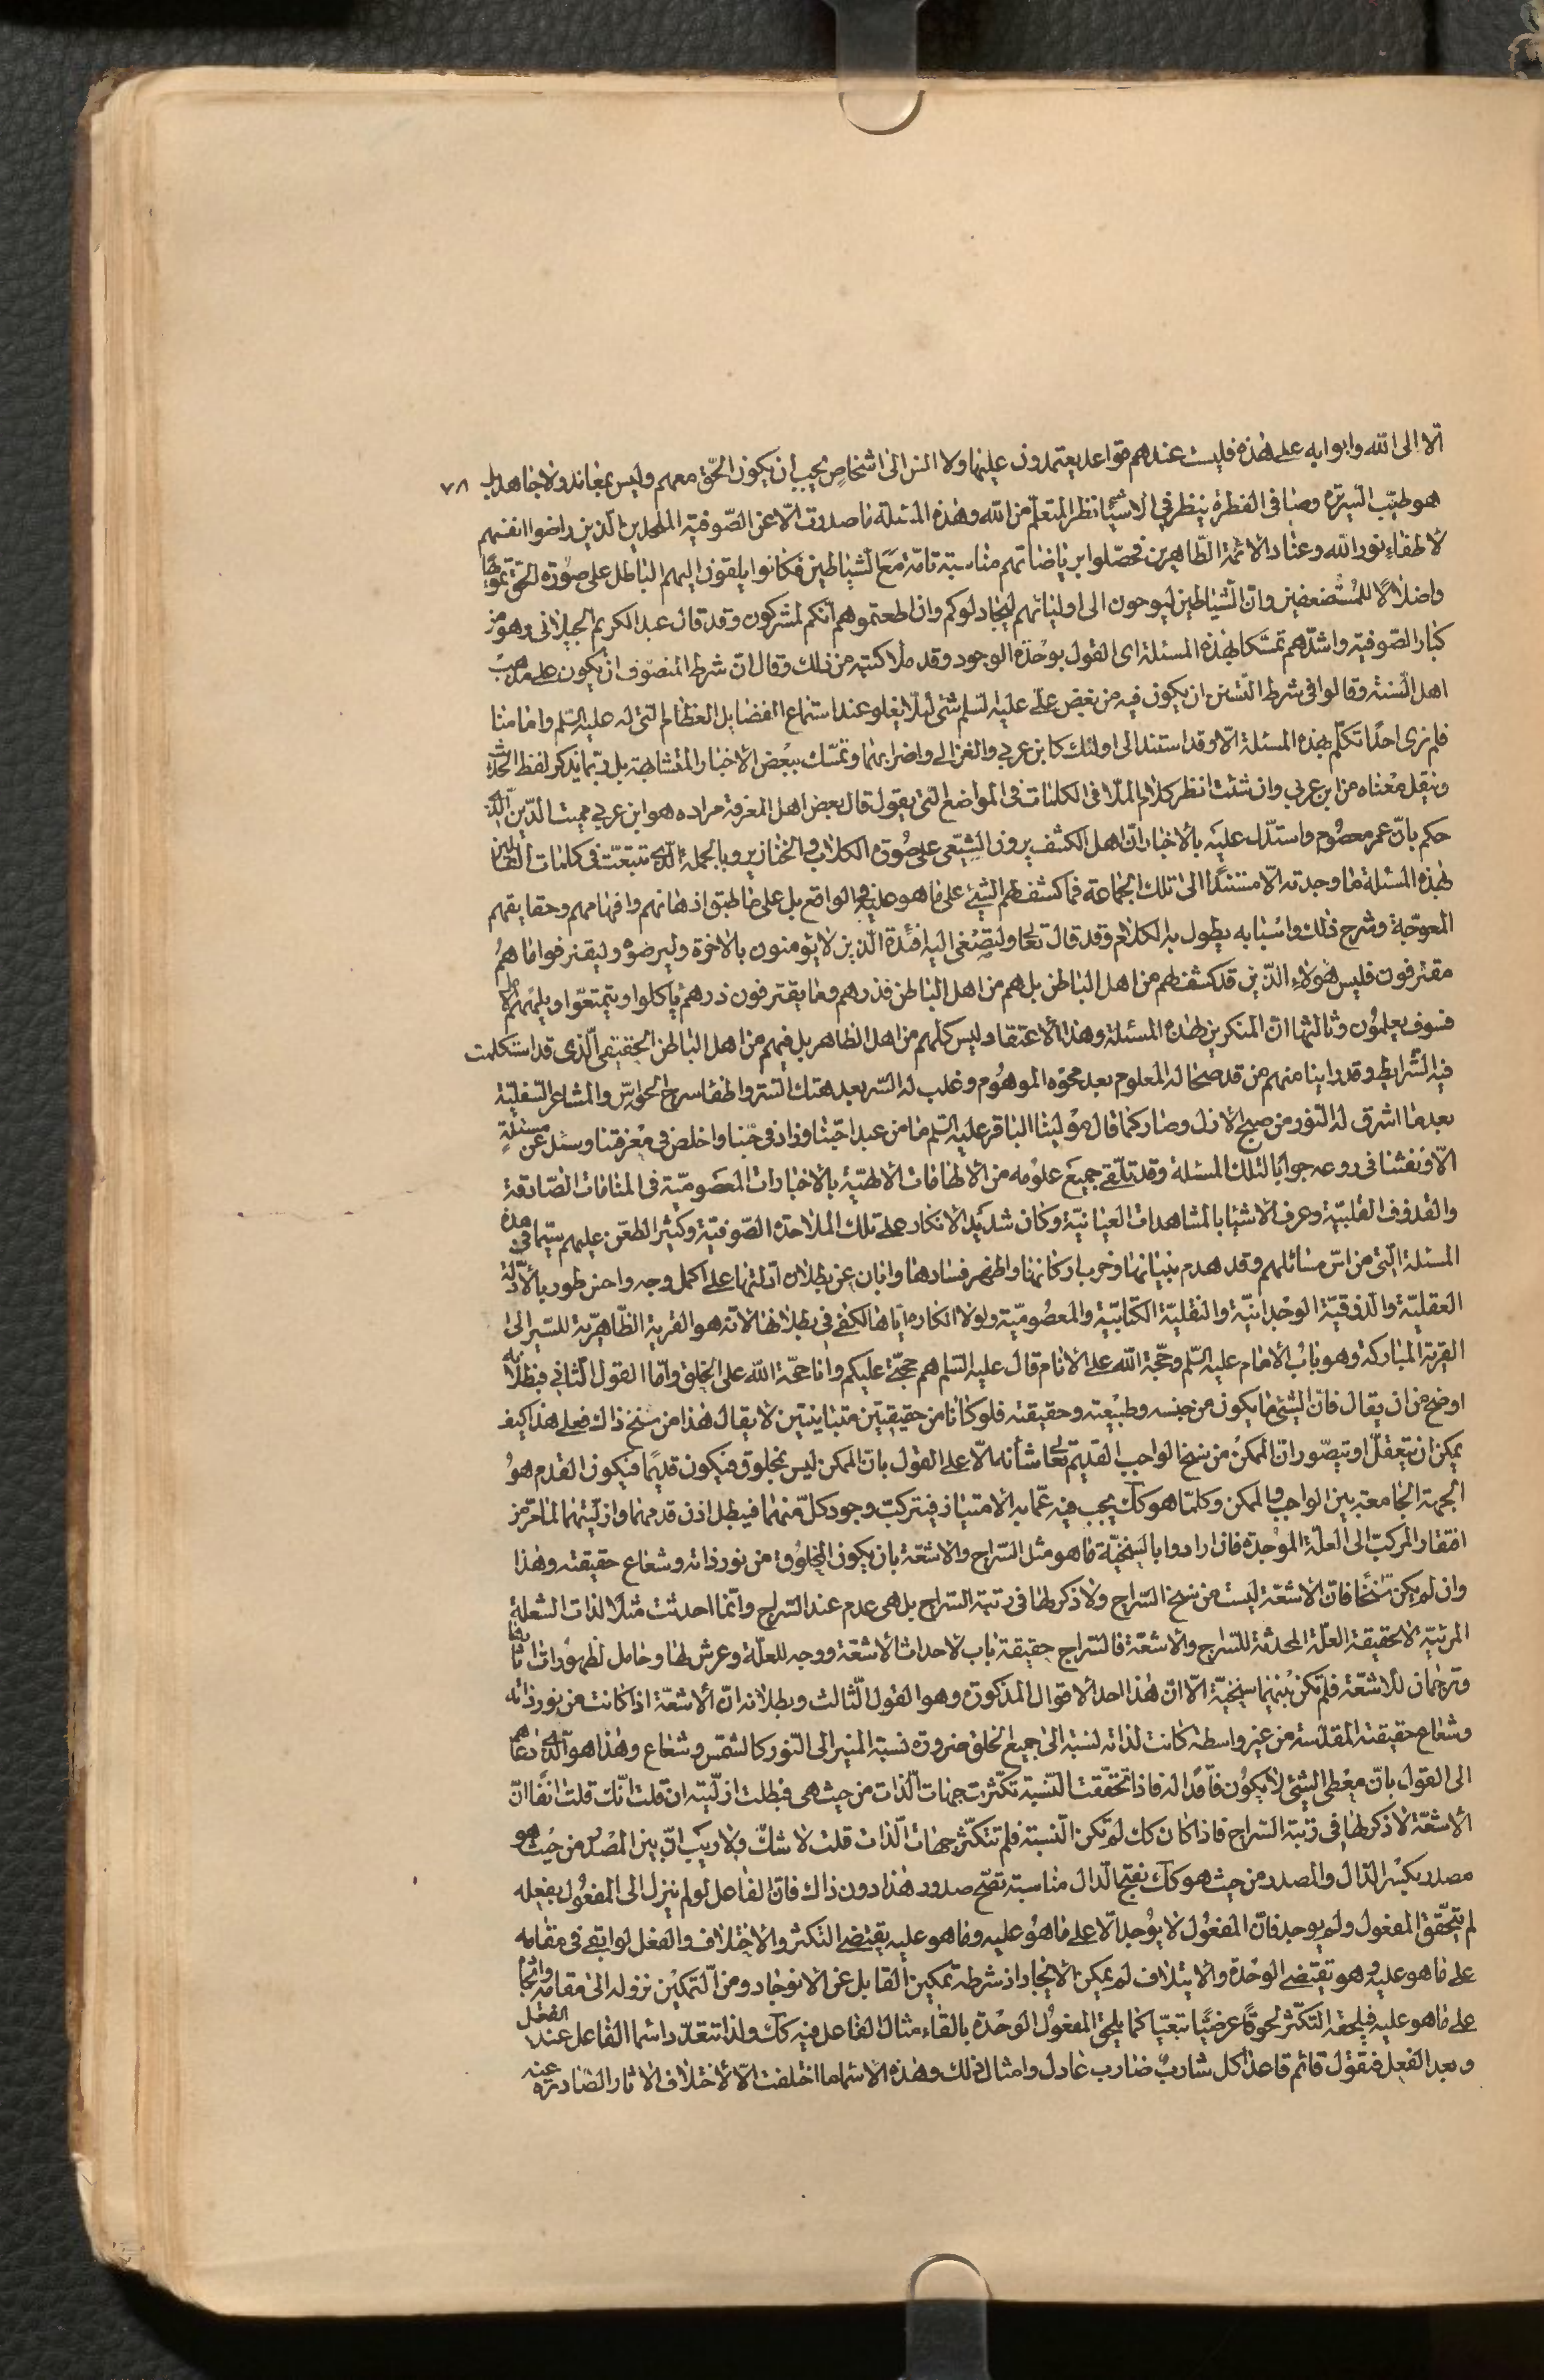 الا الى الله وابوابه على هذه فليست عندهم قواعد يعتمدون عليها ولا انس الى اشخاص يجب ان يكون الحق معهم وليس بمعاند ولا جاهد بل ٧٨
هو طيّب السيرة وصافى الفطرة ينظر في الاشيا نظر المتعلم من الله وهذه المسئلة ما صدرت الّا عن الصّوفية الملحدين الذين راضوا انفسهم
لاطفاء نور الله وعناد الائمة الطّاهرين فحصّلوا برياضاتهم مناسبة تامّة مع الشياطين فكانوا يلقون اليهم الباطل على صورة الحق تمويها
واضلالًا للمستضعفين وان الشياطين ليوحون الى اوليائهم ليجادلوكم وان اطعتموهم انّكم لمشركون وقد قال عبد الكريم الجيلانى وهو من
كبار الصّوفية واشدّهم تمسّكا بهذه المسئلة اى القول بوحدة الوجود وقد ملا كتبه من ذلك وقال ان شرط المتصوّف ان يكون على مذهب
اهل السّنة وقالوا فى شرط التّسنن ان يكون فيه من بغض على عليه السلم شئ لئلا يغلو عند استماع الفضايل العظام التى له عليه السّلم واما منا
فلم نرى احدًا تكلّم بهذه المسئلة الّا وقد استند الى اولئك كابن عربي والغزالي واضرابهما وتمسّك ببعض الاخبار المتشابهة بل ربّما يذكر لفظ الحديث
وينقل معناه من ابن عربي وان شئت انظر كلام الملّا فى الكلمات فى المواضع التى يقول قال بعض اهل المعرفة مراده هو ابن عربي مميت الدّين الّذى
حكم بانّ عمر معصوم واستدلّ عليه بالاخبار انّ اهل الكشف يرون الشيعى على صورة الكلاب والخنازير وبالجملة الّذى تتبعت فى كلمات القائلين
بهذه المسئلة ما وجدته الّا مستندًا الى تلك الجماعة فما كشف لهم الشيء على ما هو عليه فى الواقع بل على ما طبق اذهانهم وافهامهم وحقايقهم
المعوجّة وشرح ذلك واسبابه يطول به الكلام وقد قال تعالى ولتصغى اليه افئدة الّذين لا يؤمنون بالاخرة وليرضوه وليقترفوا ما هم
مقترفون فليس هولاء الّذين قد كشف لهم من اهل الباطن بل هم من اهل الباطن فذرهم وما يقترفون ذرهم ياكلوا ويتمتعوا ويلههم الامل
فسوف يعلمون وثالثها انّ المنكرين لهذه المسئلة وهذا الاعتقاد ليس كلهم من اهل الظاهر بل فيهم من اهل الباطن الحقيقي الّذى قد استكملت
فيه الشّرايط وقد راينا منهم من قد صحا له المعلوم بعد محوه الموهوم وغلب له السّر بعد هتك السّتر واطفا سراج الحواسّ والمشاعر السّفليّة
بعد ما اشرق له النّور من صبح الازل وصار كما قال مولينا الباقر عليه السّلم ما من عبد احبّنا وزاد فى حبنا واخلص فى معرفتنا وسئل عن مسئلة
الّا ونفثنا فى روعه جوابًا لتلك المسئلة وقد تلّقى جميع علومه من الالهامات الالهيّة بالاخبارات المعصوميّة فى المنامات الصّادقة
والقذوف القلبيّة وعرف الاشيا بالمشاهدات العيانيّة وكان شديد الانكار على تلك الملاحدة الصّوفيّة وكثير الطّعن عليهم سيّما فى هذه
المسئلة الّتى من اسّ مسائلهم وقد هدم بنيانها وخرب اركانها واظهر فسادها وابان عن بطلان ادلّتها على اكمل وجه واحسن طور بالادلّة
العقليّة والذوقيّة الوجدانيّة والنقليّة الكتابيّة والمعصوميّة ولولا انكاره اياها لكفى فى بطلانها لانّه هو القرية الظّاهريّة للسّير الى
القرية المباركة وهو باب الامام عليه السّلم وحجّة الله على الانام قال عليه السّلم هم حجّتى عليكم وانا حجّة الله على الخلق وامّا القول الثّانى فبطلانه
اوضح من ان يقال فان الشئ ما يكون من جنسه وطبيعته وحقيقته فلو كانا من حقيقتين متباينتين لا يقال هذا من سنخ ذاك فعلى هذا كيف
يمكن ان يتعقّل او يتصّور انّ الممكن من سنخ الواجب القديم تعالى شأنه الّا على القول بان الممكن ليس بمخلوق فيكون قديمًا فيكون القدم هو
الجهة الجامعة بين الواجب والممكن وكلّما هو كك يجب فيه عمّا به الامتياز فيتركب وجود كلّ منهما فيبطل اذن قدمهما وازليّتهما لما تقرر من
افتقار المركبّ الى العلّة الموجدة فان ارادوا بالسّنخيّة ما هو مثل السّراج والاشعّة بان يكون المخلوق من نور ذاته وشعاع حقيقته وهذا
وان لم يكن سنخًا فان الاشعّة ليست من سنخ السّراج ولا ذكر لها فى رتبة السّراج بل هى عدم عند السّراج وانّما احدثت مثلًا لذات الشعلة
المرئيّة لا لحقيقة العلّة المحدثة للسّراج والاشعّة فالسّراج حقيقة باب لاحداث الاشعّة ووجه للعلّة وعرش لها وحامل لظهورات اثارها
وترجمان للاشعّة فلم تكن بينهما سنخيّة الّا انّ هذا احد الاقوال المذكورة وهو القول الثّالث وبطلانه انّ الاشعّة اذا كانت من نور ذاته
وشعاع حقيقته المقدّسة من غير واسطة كانت لذاته نسبة الى جميع الخلق ضرورة نسبة المنير الى النّور كالشمس وشعاع وهذا هو الّذى دعاهم
الى القول بانّ معطى الشئ لا يكون فاقدًا له فاذا تحقّقت النّسبة تكثّرت جهات الذّات من حيث هى فبطلت ازليّته ان قلت انّك قلت انفًا انّ
الاشعّة لا ذكر لها فى رتبة السّراج فاذا كان كك لم تكن النّسبة فلم تتكثّر جهات الذّات قلت لا شكّ ولا ريب انّ بين المصدر من حيث هو
مصدر بكسر الدّال والمصدر من حيث هو كك بفتح الدّال مناسبة تصحّح صدور هذا دون ذاك فان الفاعل لو لم ينزل الى المفعول بفعله
لم يتحّقق المفعول ولم يوجد فانّ المفعول لا يوجد الّا على ما هو عليه وما هو عليه يقتضى التكثر والاختلاف والفعل لو ابقى فى مقامه
على ما هو عليه وهو يقتضى الوحدة والايتلاف لم يمكن الايجاد اذ شرطه تمكين القابل عن الانوجاد ومن التمكين نزوله الى مقامه وايجاده
على ما هو عليه فيلحقه التكثّر لحوقًا عرضيًا تبعيّا كما يلحق المفعول الوحدة بالقاء مثال الفاعل فيه كك ولذا تتعدّد اسما الفاعل عند الفعل
وبعد الفعل فتقول قائم قاعد اكل شارب ضارب عادل وامثال ذلك وهذه الاسماء ما اختلفت الّا لاختلاف الاثار الصّادرة عنه